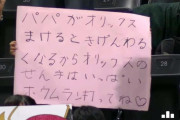 パパがオリックス
まけるときげんわる
くなるからオリックスの
せんきはいっぱい
ホウムラン打ってね♡